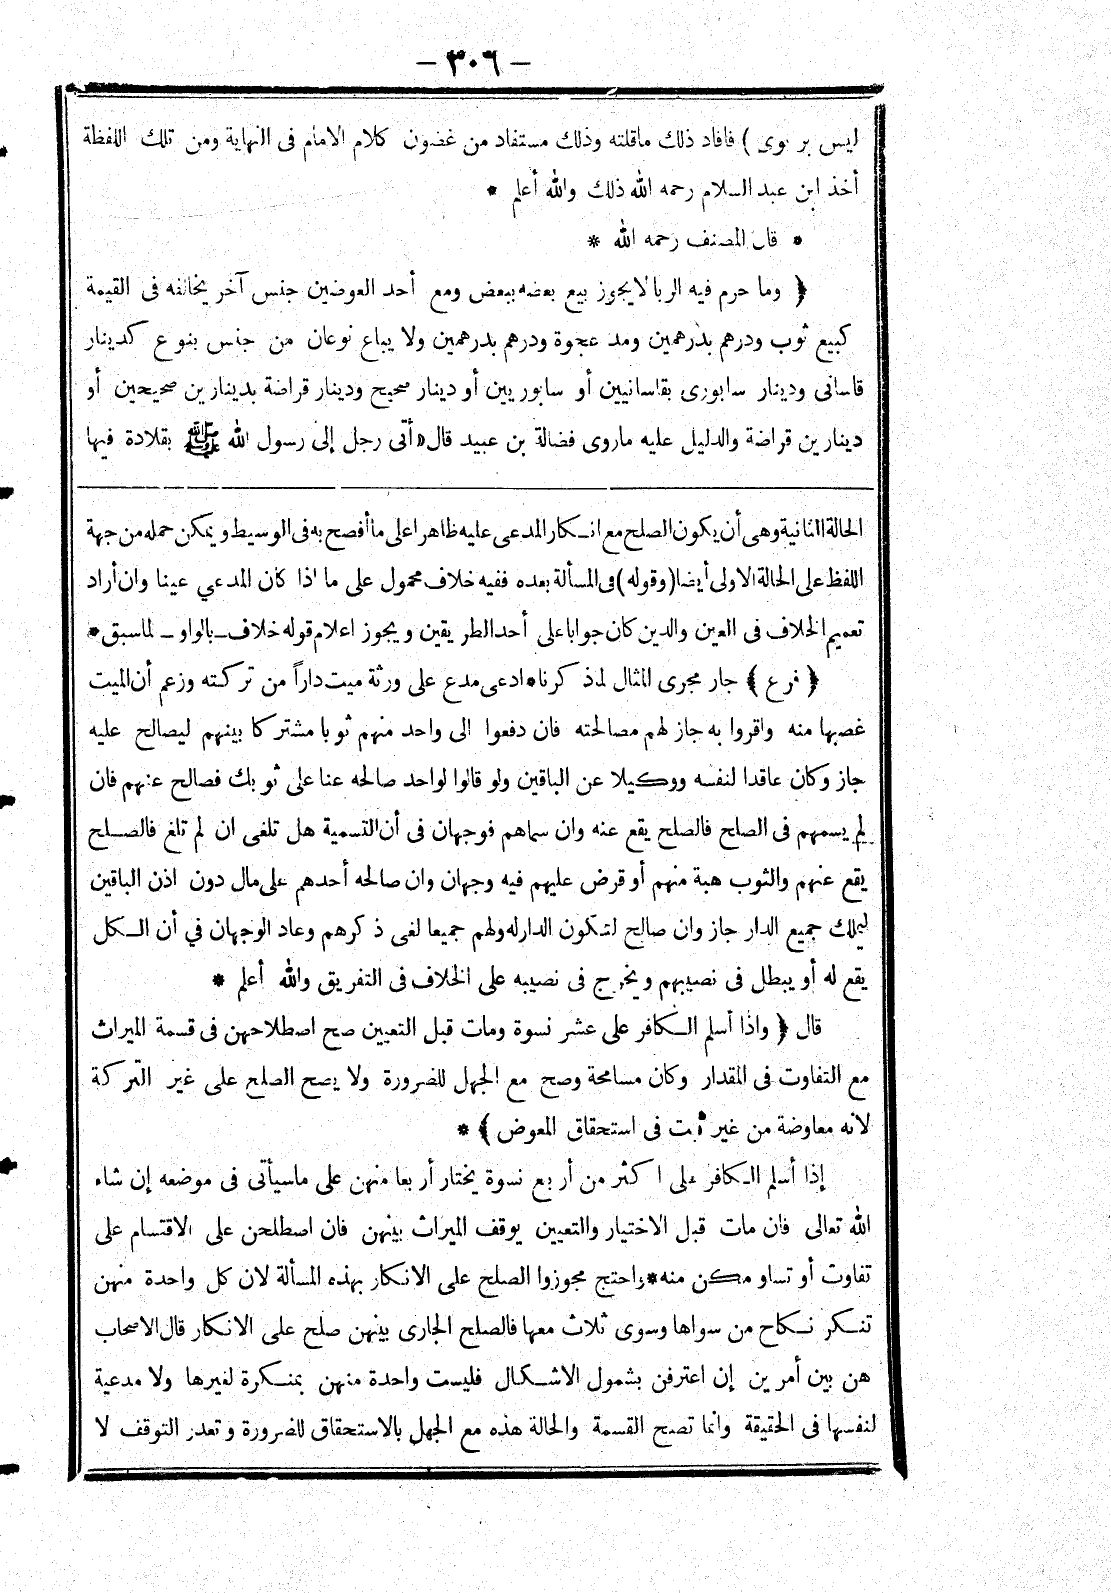 - ٣٠٦ -
ليس بربوى ) فافاد ذلك ماقلته وذلك مستفاد من غضون كلام الامام فى النهاية ومن تلك اللفظة
أخذ ابن عبد السلام رحمه الله ذلك والله أعلم *
* قال المصنف رحمه الله *
﴿ وما حرم فيه الربا لايجوز بيع بعضه ببعض ومع أحد العوضين جنس آخر يخالفه فى القيمة
كبيع ثوب ودرهم بدرهمين ومد عجوة ودرهم بدرهمين ولا يباع نوعان من جنس بنوع كدينار
قاسانى ودينار سابورى بقاسانيين أو سابوريين أو دينار صحيح ودينار قراضة بدينارين صحيحين أو
دينارين قراضة والدليل عليه ماروى فضالة بن عبيد قال « أتى رجل إلى رسول الله ﷺ بقلادة فيها
الحالة الثانية وهى أن يكون الصلح مع انكار المدعى عليه ظاهرا على ما أفصح به فى الوسيط ويمكن حمله من جهة
اللفظ على الحالة الاولى أيضا (وقوله) فى المسألة بعده ففيه خلاف محمول على ما اذا كان المدعي عينا وان أراد
تعميم الخلاف فى العين والدين كان جوابا على أحد الطريقين ويجوز اعلام قوله خلاف ـ بالواو ـ لماسبق *
﴿ فرع ﴾ جار مجرى المثال لما ذكرنا * ادعى مدع على ورثة ميت داراً من تركته وزعم أن الميت
غصبها منه واقروا به جاز لهم مصالحته فان دفعوا الى واحد منهم ثوبا مشتركا بينهم ليصالح عليه
جاز وكان عاقدا لنفسه ووكيلا عن الباقين ولو قالوا لواحد صالحه عنا على ثوبك فصالح عنهم فان
لم يسمهم فى الصلح فالصلح يقع عنه وان سماهم فوجهان فى أن التسمية هل تلغى ان لم تلغ فالصلح
يقع عنهم والثوب هبة منهم أو قرض عليهم فيه وجهان وان صالحه أحدهم على مال دون اذن الباقين
ليملك جميع الدار جاز وان صالح لتكون الدار له ولهم جميعا لغى ذكرهم وعاد الوجهان في أن الكل
يقع له أو يبطل فى نصيبهم ويخرج فى نصيبه على الخلاف فى التفريق والله أعلم *
قال ﴿ واذا أسلم الكافر على عشر نسوة ومات قبل التعيين صح اصطلاحهن فى قسمة الميراث
مع التفاوت فى المقدار وكان مسامحة وصح مع الجهل للضرورة ولا يصح الصلح على غير التركة
لانه معاوضة من غير ثبت فى استحقاق المعوض ﴾ *
إذا أسلم الكافر على اكثر من أربع نسوة يختار أربعا منهن على ماسيأتى فى موضعه إن شاء
الله تعالى فان مات قبل الاختيار والتعيين يوقف الميراث بينهن فان اصطلحن على الاقتسام على
تفاوت أو تساو مكن منه * واحتج مجوزوا الصلح على الانكار بهذه المسألة لان كل واحدة منهن
تنكر نكاح من سواها وسوى ثلاث معها فالصلح الجارى بينهن صلح على الانكار قال الاصحاب
هن بين أمرين إن اعترفن بشمول الاشكال فليست واحدة منهن بمنكرة لغيرها ولا مدعية
لنفسها فى الحقيقة وانما تصح القسمة والحالة هذه مع الجهل بالاستحقاق للضرورة وتعذر التوقف لا